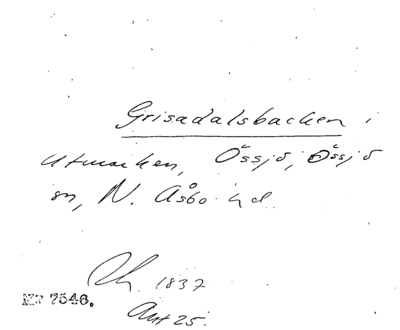 Grisadalsbacken i
utmarken, Össjö, Össjö
sn, N. Åsbo hd.
1837
Nr 7546.
Akt 25.